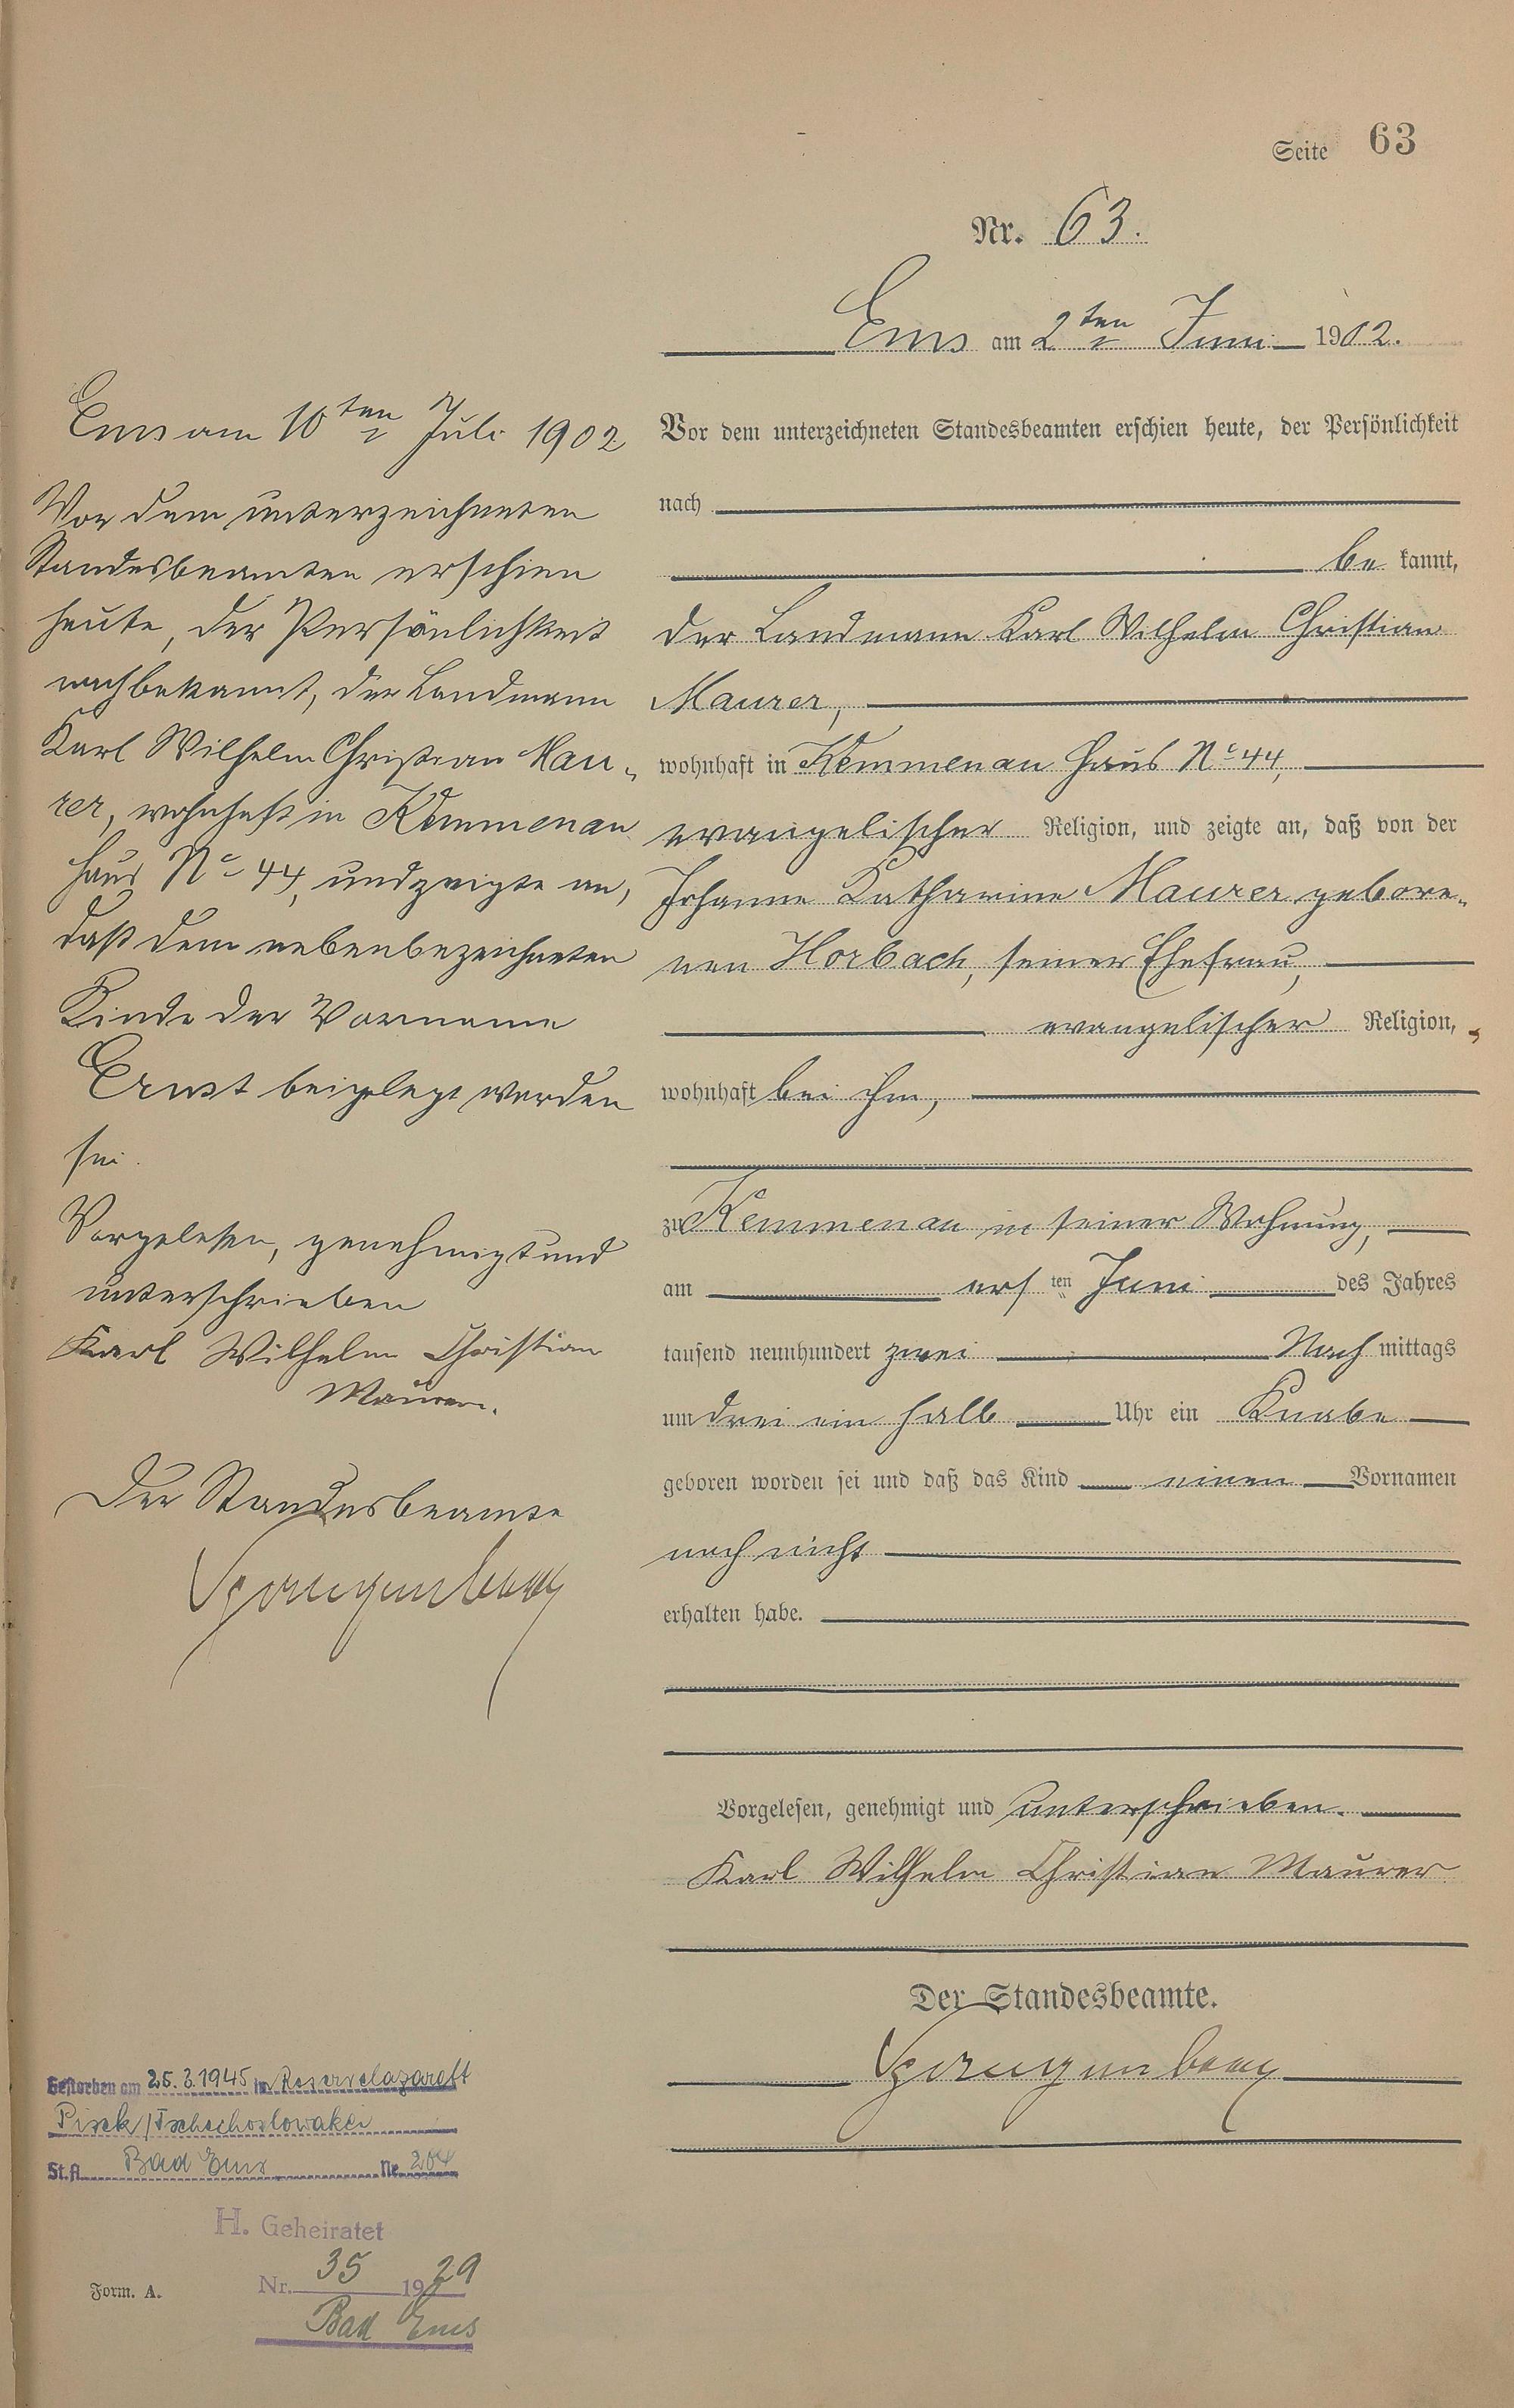 Seite 63
Nr. 63.
Ems am 2ten Juni 1902.
Vor dem unterzeichneten Standesbeamten erschien heute, der Persönlichkeit
nach
be kannt,
der Landmann Karl Wilhelm Christian
Maurer,
wohnhaft in Kemmenau Haus No 44,
evangelischer Religion, und zeigte an, daß von der
Johanne Katharine Maurer gebore-
nen Horbach, seiner Ehefrau,
evangelischer Religion,
wohnhaft bei ihm,
zu Kemmenau in seiner Wohnung,
am ersten Juni des Jahres
tausend neunhundert zwei Nach mittags
um drei ein halb Uhr ein Knabe
geboren worden sei und daß das Kind einen Vornamen
noch nicht
erhalten habe.
Vorgelesen, genehmigt und unterschrieben.
Karl Wilhelm Christian Maurer
Der Standesbeamte.
Ems am 10ten Juli 1902
Vor dem unterzeichneten
Standesbeamten erschien
heute, der Persönlichkeit
nach bekannt, der Landmann
Karl Wilhelm Christian Mau-
rer, wohnhaft in Kemmenau
Haus No 44, und zeigte an,
daß dem nebenbezeichneten
Kinde der Vorname
Ernst beigelegt worden
sei.
Vorgelesen, genehmigt und
unterschrieben
Karl Wilhelm Christian
Maurer.
Der Standesbeamte
Gestorben am 25.3.1945 im Reservelazarett
Pisek/Tschechoslowakei
St.A. Bad Ems Nr. 204
H. Geheiratet
Nr. 35 1929
Bad Ems
Form. A.